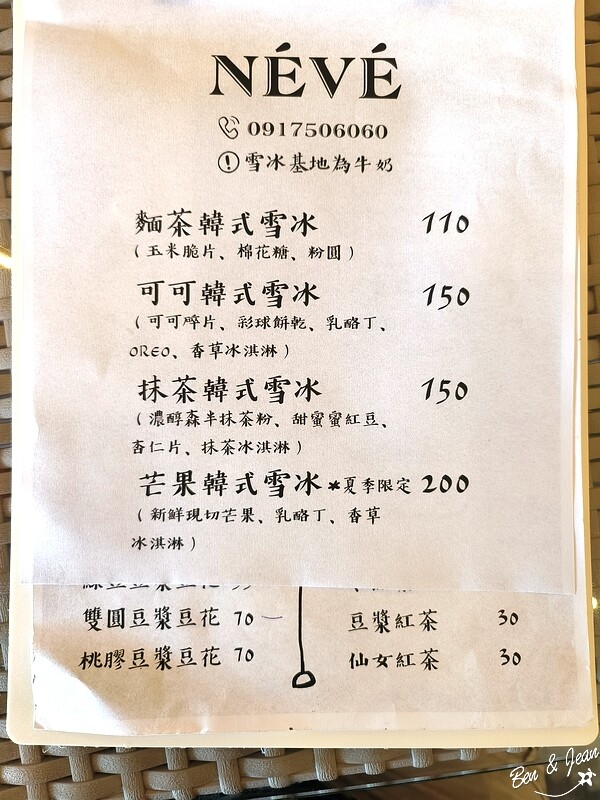 NÉVÉ
0917506060
雪冰基地為牛奶
麵茶韓式雪冰 110
(玉米脆片、棉花糖、粉圓)
可可韓式雪冰 150
(可可碎片、彩球餅乾、乳酪丁、
OREO、香草冰淇淋)
抹茶韓式雪冰 150
(濃醇森半抹茶粉、甜蜜蜜紅豆、
杏仁片、抹茶冰淇淋)
芒果韓式雪冰 *夏季限定 200
(新鮮現切芒果、乳酪丁、香草
冰淇淋)
雙圓豆漿豆花 70
豆漿紅茶 30
桃膠豆漿豆花 70
仙女紅茶 30
Ben & Jean